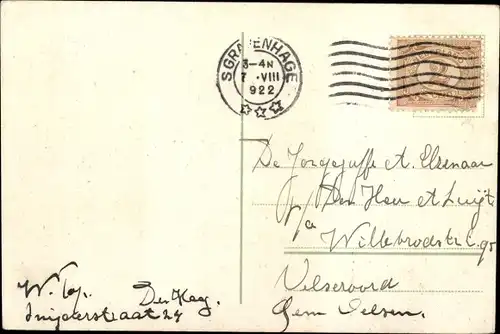 S GRAVENHAGE
3-4N
7 .VIII
922
De Jongejuffr. A. Elzenaar
p/a Den Heer A. Luijt
Willebrordstr.
Velseroord
Gem. Velsen.
W. Top.
Den Haag.
straat 24